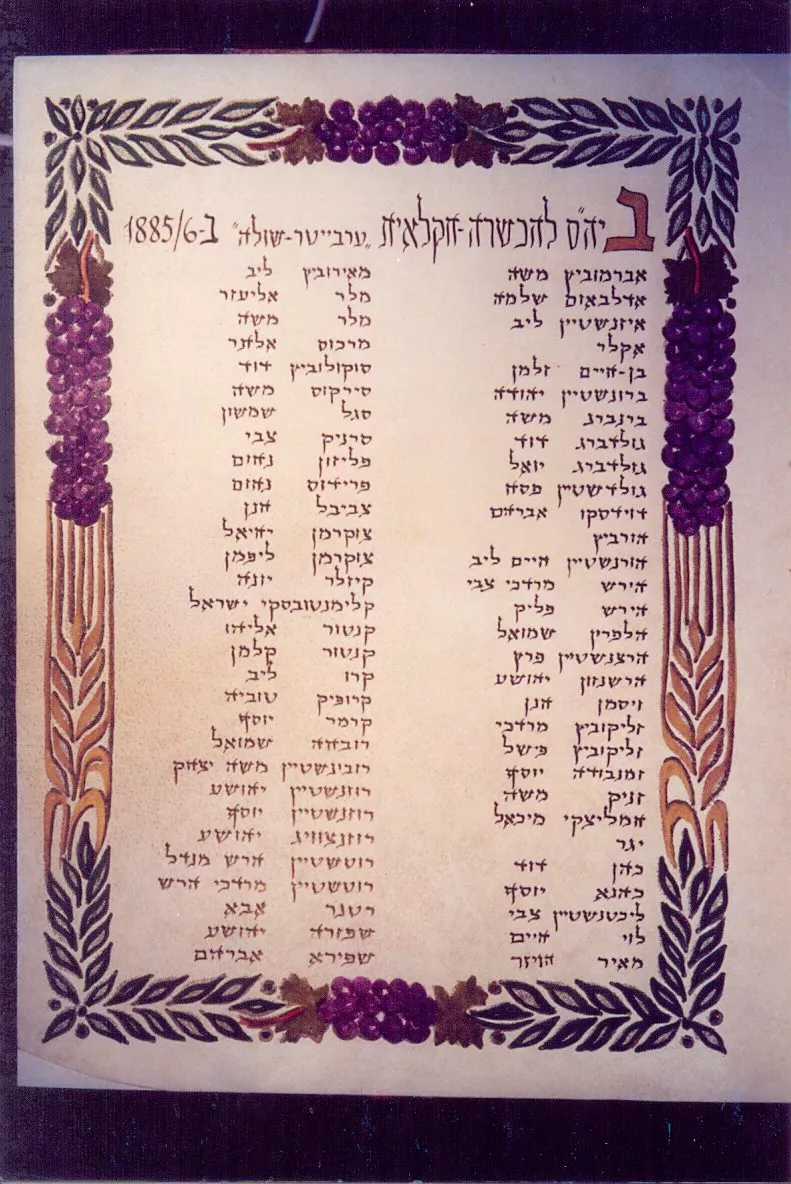 ביה"ס להכשרה-חקלאית „ערבייטר-שולה" ב-1885/6
אברמוביץ משה
אדלבאום שלמה
איזנשטיין ליב
אקלר
בן-חיים זלמן
ברונשטיין יהודה
בינברג משה
גולדברג דוד
גולדברג יואל
גולדשטיין פסח
דוידסקו אברהם
הורביץ
הורנשטיין חיים ליב
הירש מרדכי צבי
הירש פליק
הלפרין שמואל
הרצנשטיין פרץ
הרשנזון יהושע
ויסמן חנן
זליקוביץ מרדכי
זליקוביץ פישל
זמנבודה יוסף
זניק משה
חמליצקי מיכאל
יגר
כהן דוד
כהנא יוסף
ליכטנשטיין צבי
לוי חיים
מאיר הויזר
מאירוביץ ליב
מלר אליעזר
מלר משה
מרכוס אלחנר
סוקולוביץ דוד
סירקוס משה
סגל שמשון
סרניק צבי
פליזון נחום
פרידוס נחום
צביבל חנן
צוקרמן יחיאל
צוקרמן ליפמן
קיזלר יונה
קלימנטובסקי ישראל
קנטור אליהו
קנטור קלמן
קרו ליב
קרופיק טוביה
קרמר יוסף
רובחה שמואל
רובינשטיין משה יצחק
רוזנשטיין יהושע
רוזנשטיין יוסף
רוזנצוויג יהושע
רוטשטיין הרש מנדל
רוטשטיין מרדכי הרש
רטנר אבא
שפזרה יהושע
שפירא אברהם